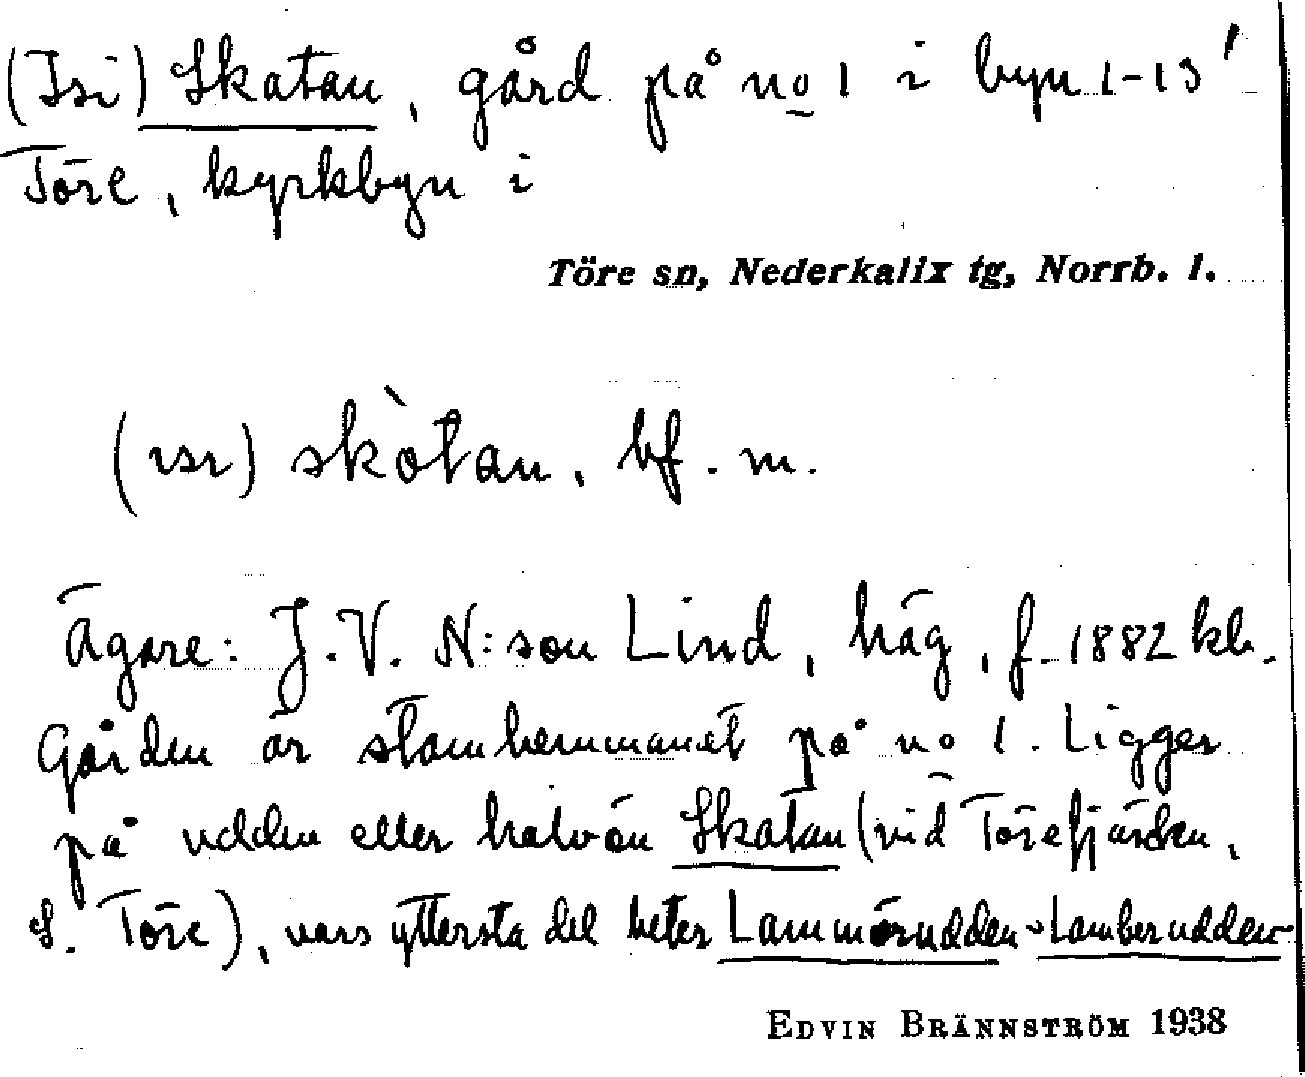 (Isi) Skatan, gård på no 1 i byn 1-13
Töre, kyrkbyn i
Töre sn, Nederkalix tg, Norrb. l.
(ısı) skòtan, bf. m.
Ägare: J. V. N:son Lind, häg, f. 1882 kb.
Gården är stamhemmanet på no 1. Ligger
på udden eller halvön Skatan (vid Törefjärden,
S. Töre), vars yttersta del heter Lammörudden ~ Lamberudden
EDVIN BRÄNNSTRÖM 1938